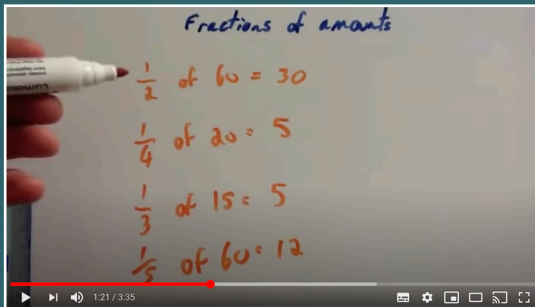 Fractions of amounts
1/2 of 60 = 30
1/4 of 20 = 5
1/3 of 15 = 5
1/5 of 60 = 12
1:21 / 3:35